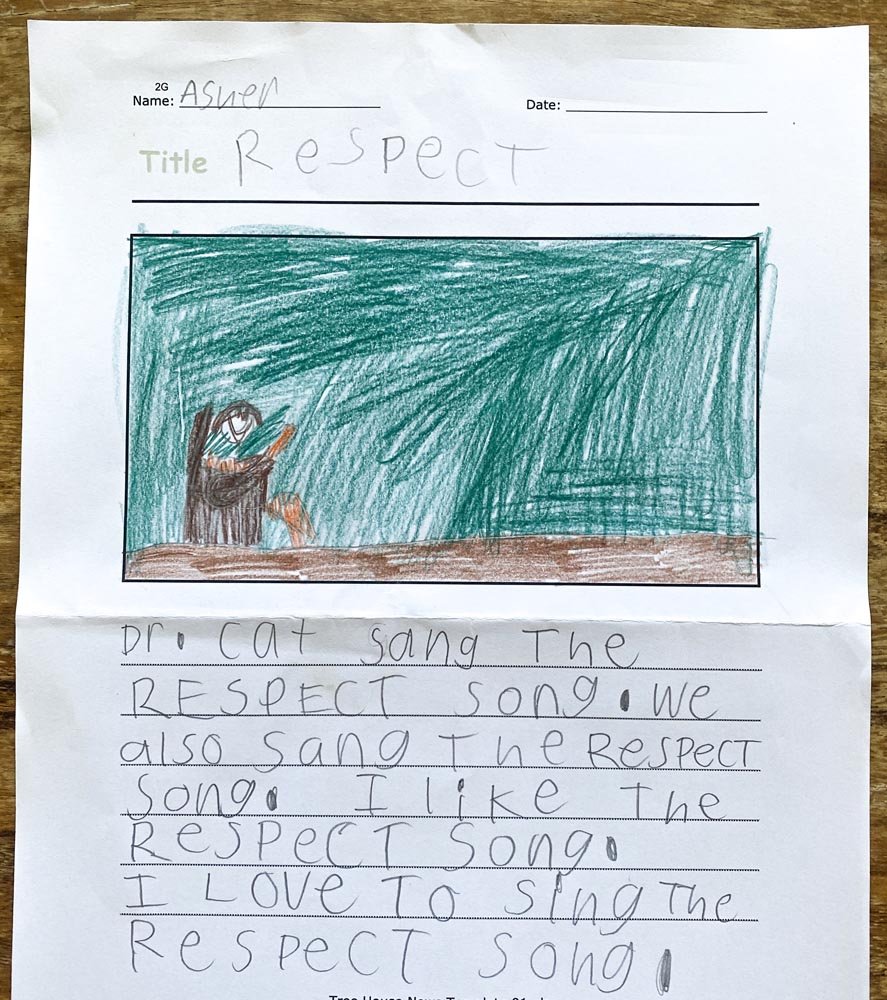 2G
Name: Asher Date:
Title Respect
Dr. cat sang The
RESPECT song. We
also sang The Respect
Song. I like The
Respect Song.
I Love To sing The
Respect song.